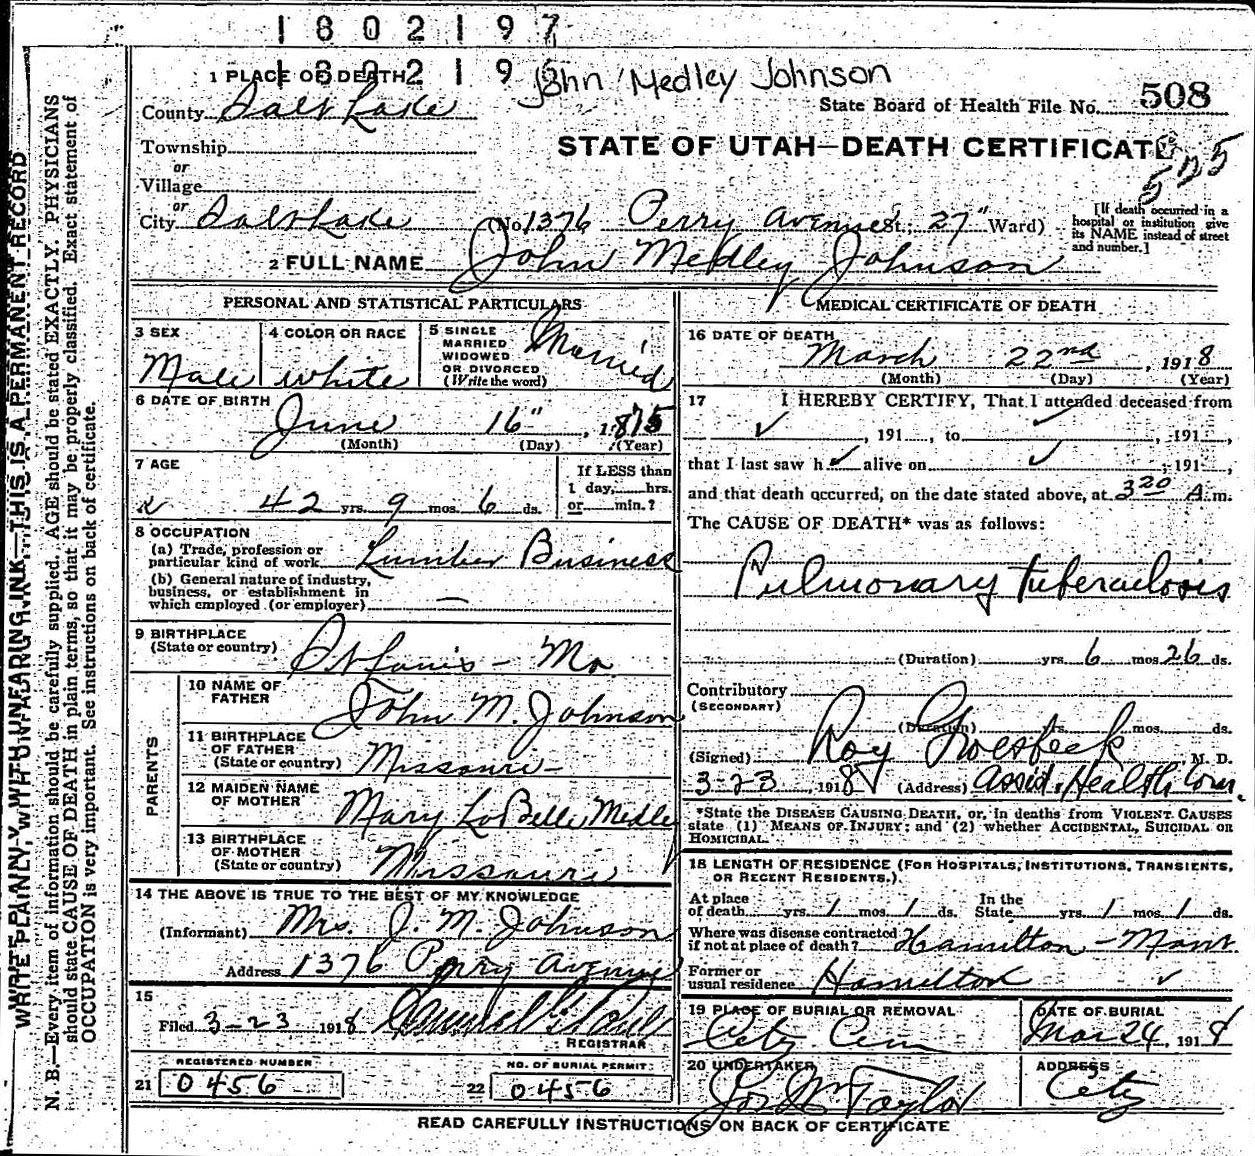 1802197
180219
John Medley Johnson
1 PLACE OF DEATH
County Salt Lake
State Board of Health File No. 508
Township
STATE OF UTAH—DEATH CERTIFICATE
or
Village
or
City Salt Lake (No. 1376 Perry Avenue St.; 27" Ward)
[If death occurred in a hospital or institution give its NAME instead of street and number.]
2 FULL NAME John Medley Johnson
PERSONAL AND STATISTICAL PARTICULARS
3 SEX Male
4 COLOR OR RACE white
5 SINGLE MARRIED WIDOWED OR DIVORCED (Write the word) Married
6 DATE OF BIRTH
June 16", 1875
(Month) (Day) (Year)
7 AGE
42 yrs. 9 mos. 6 ds.
If LESS than
1 day,......hrs.
or......min.?
8 OCCUPATION
(a) Trade, profession or
particular kind of work Lumber Business
(b) General nature of industry,
business, or establishment in
which employed (or employer) —
9 BIRTHPLACE
(State or country) St Louis - Mo
PARENTS
10 NAME OF
FATHER John M. Johnson
11 BIRTHPLACE
OF FATHER
(State or country) Missouri -
12 MAIDEN NAME
OF MOTHER Mary LaBelle Medley
13 BIRTHPLACE
OF MOTHER
(State or country) Missouri
14 THE ABOVE IS TRUE TO THE BEST OF MY KNOWLEDGE
(Informant) Mrs. J. M. Johnson
Address 1376 Perry Avenue
15
Filed 3-23 1918
REGISTRAR
REGISTERED NUMBER
21 0456
NO. OF BURIAL PERMIT
22 0456
MEDICAL CERTIFICATE OF DEATH
16 DATE OF DEATH
March 22nd, 1918
(Month) (Day) (Year)
17 I HEREBY CERTIFY, That I attended deceased from
✓, 191...., to ✓, 191....,
that I last saw h ✓ alive on ✓, 191....,
and that death occurred, on the date stated above, at 3 20 A.m.
The CAUSE OF DEATH* was as follows:
Pulmonary tuberculosis
(Duration) yrs. 6 mos. 26 ds.
Contributory
(SECONDARY)
(Duration) yrs. mos. ds.
(Signed) Roy Groesbeck, M. D.
3-23, 1918 (Address) Assist. Health Com.
*State the DISEASE CAUSING DEATH, or, in deaths from VIOLENT CAUSES
state (1) MEANS OF INJURY; and (2) whether ACCIDENTAL, SUICIDAL OR
HOMICIDAL.
18 LENGTH OF RESIDENCE (FOR HOSPITALS, INSTITUTIONS, TRANSIENTS,
OR RECENT RESIDENTS.)
At place of death yrs. 1 mos. 1 ds. In the State yrs. 1 mos. 1 ds.
Where was disease contracted
if not at place of death? Hamilton - Mont
Former or
usual residence Hamilton ✓
19 PLACE OF BURIAL OR REMOVAL
City Cem
DATE OF BURIAL
Mar 24, 1918
20 UNDERTAKER
Jos Wm Taylor
ADDRESS
City
READ CAREFULLY INSTRUCTIONS ON BACK OF CERTIFICATE
WRITE PLAINLY, WITH UNFADING INK—THIS IS A PERMANENT RECORD
N. B.—Every item of information should be carefully supplied. AGE should be stated EXACTLY. PHYSICIANS
should state CAUSE OF DEATH in plain terms, so that it may be properly classified. Exact statement of
OCCUPATION is very important. See instructions on back of certificate.